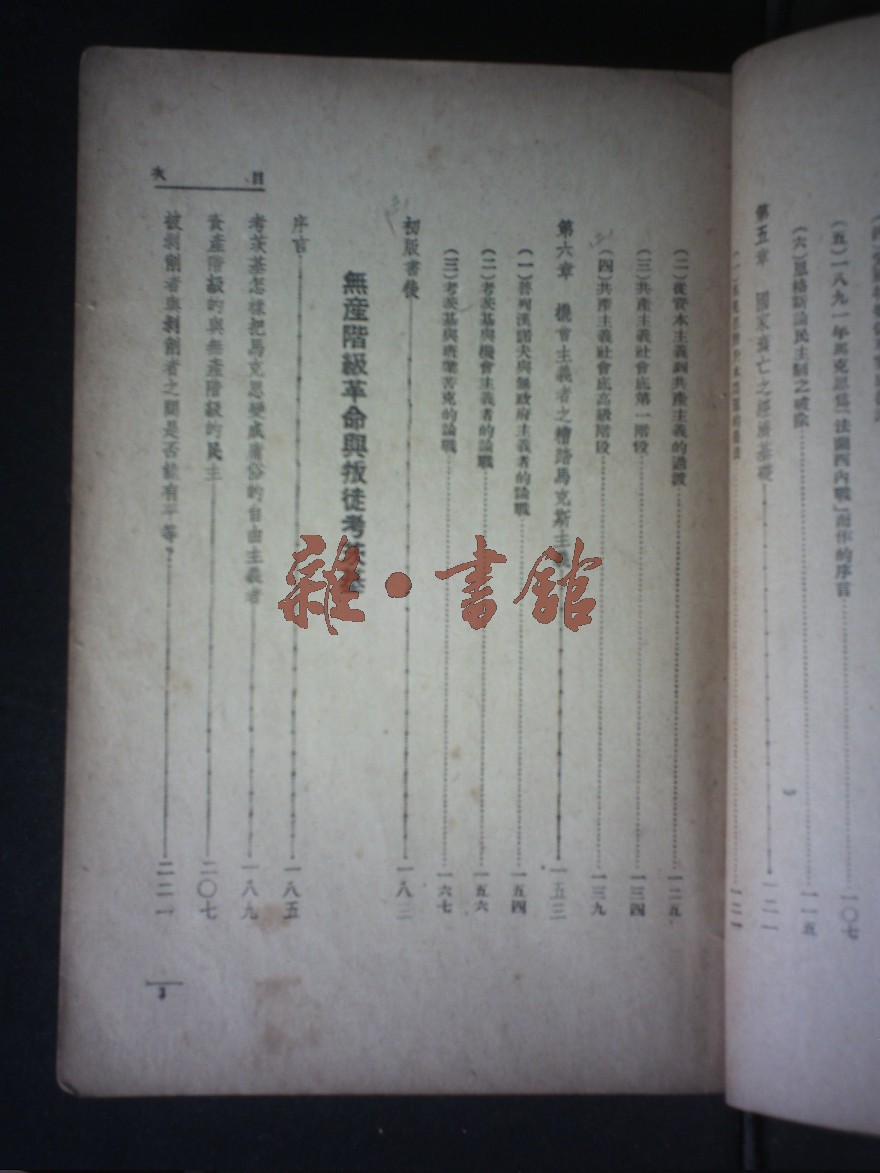 (五)一八九一年馬克思爲「法蘭西內戰」而作的序言 一〇七
(六)恩格斯論民主制之破除 一一五
第五章 國家衰亡之經濟基礎 一二一
一二一
(二)從資本主義到共產主義的過渡 一二五
(三)共產主義社會底第一階段 一三四
(四)共產主義社會底高級階段 一三九
第六章 機會主義者之糟踏馬克斯主義 一五三
(一)普列漢諾夫與無政府主義者的論戰 一五四
(二)考茨基與機會主義者的論戰 一五六
(三)考茨基與潘業苦克的論戰 一六七
初版書後
無產階級革命與叛徒考茨基
序言 一八五
考茨基怎樣把馬克思變成庸俗的自由主義者 一八九
資產階級的與無產階級的民主 二〇七
被剝削者與剝削者之間是否能有平等? 二二一
目次
3
雜·書館